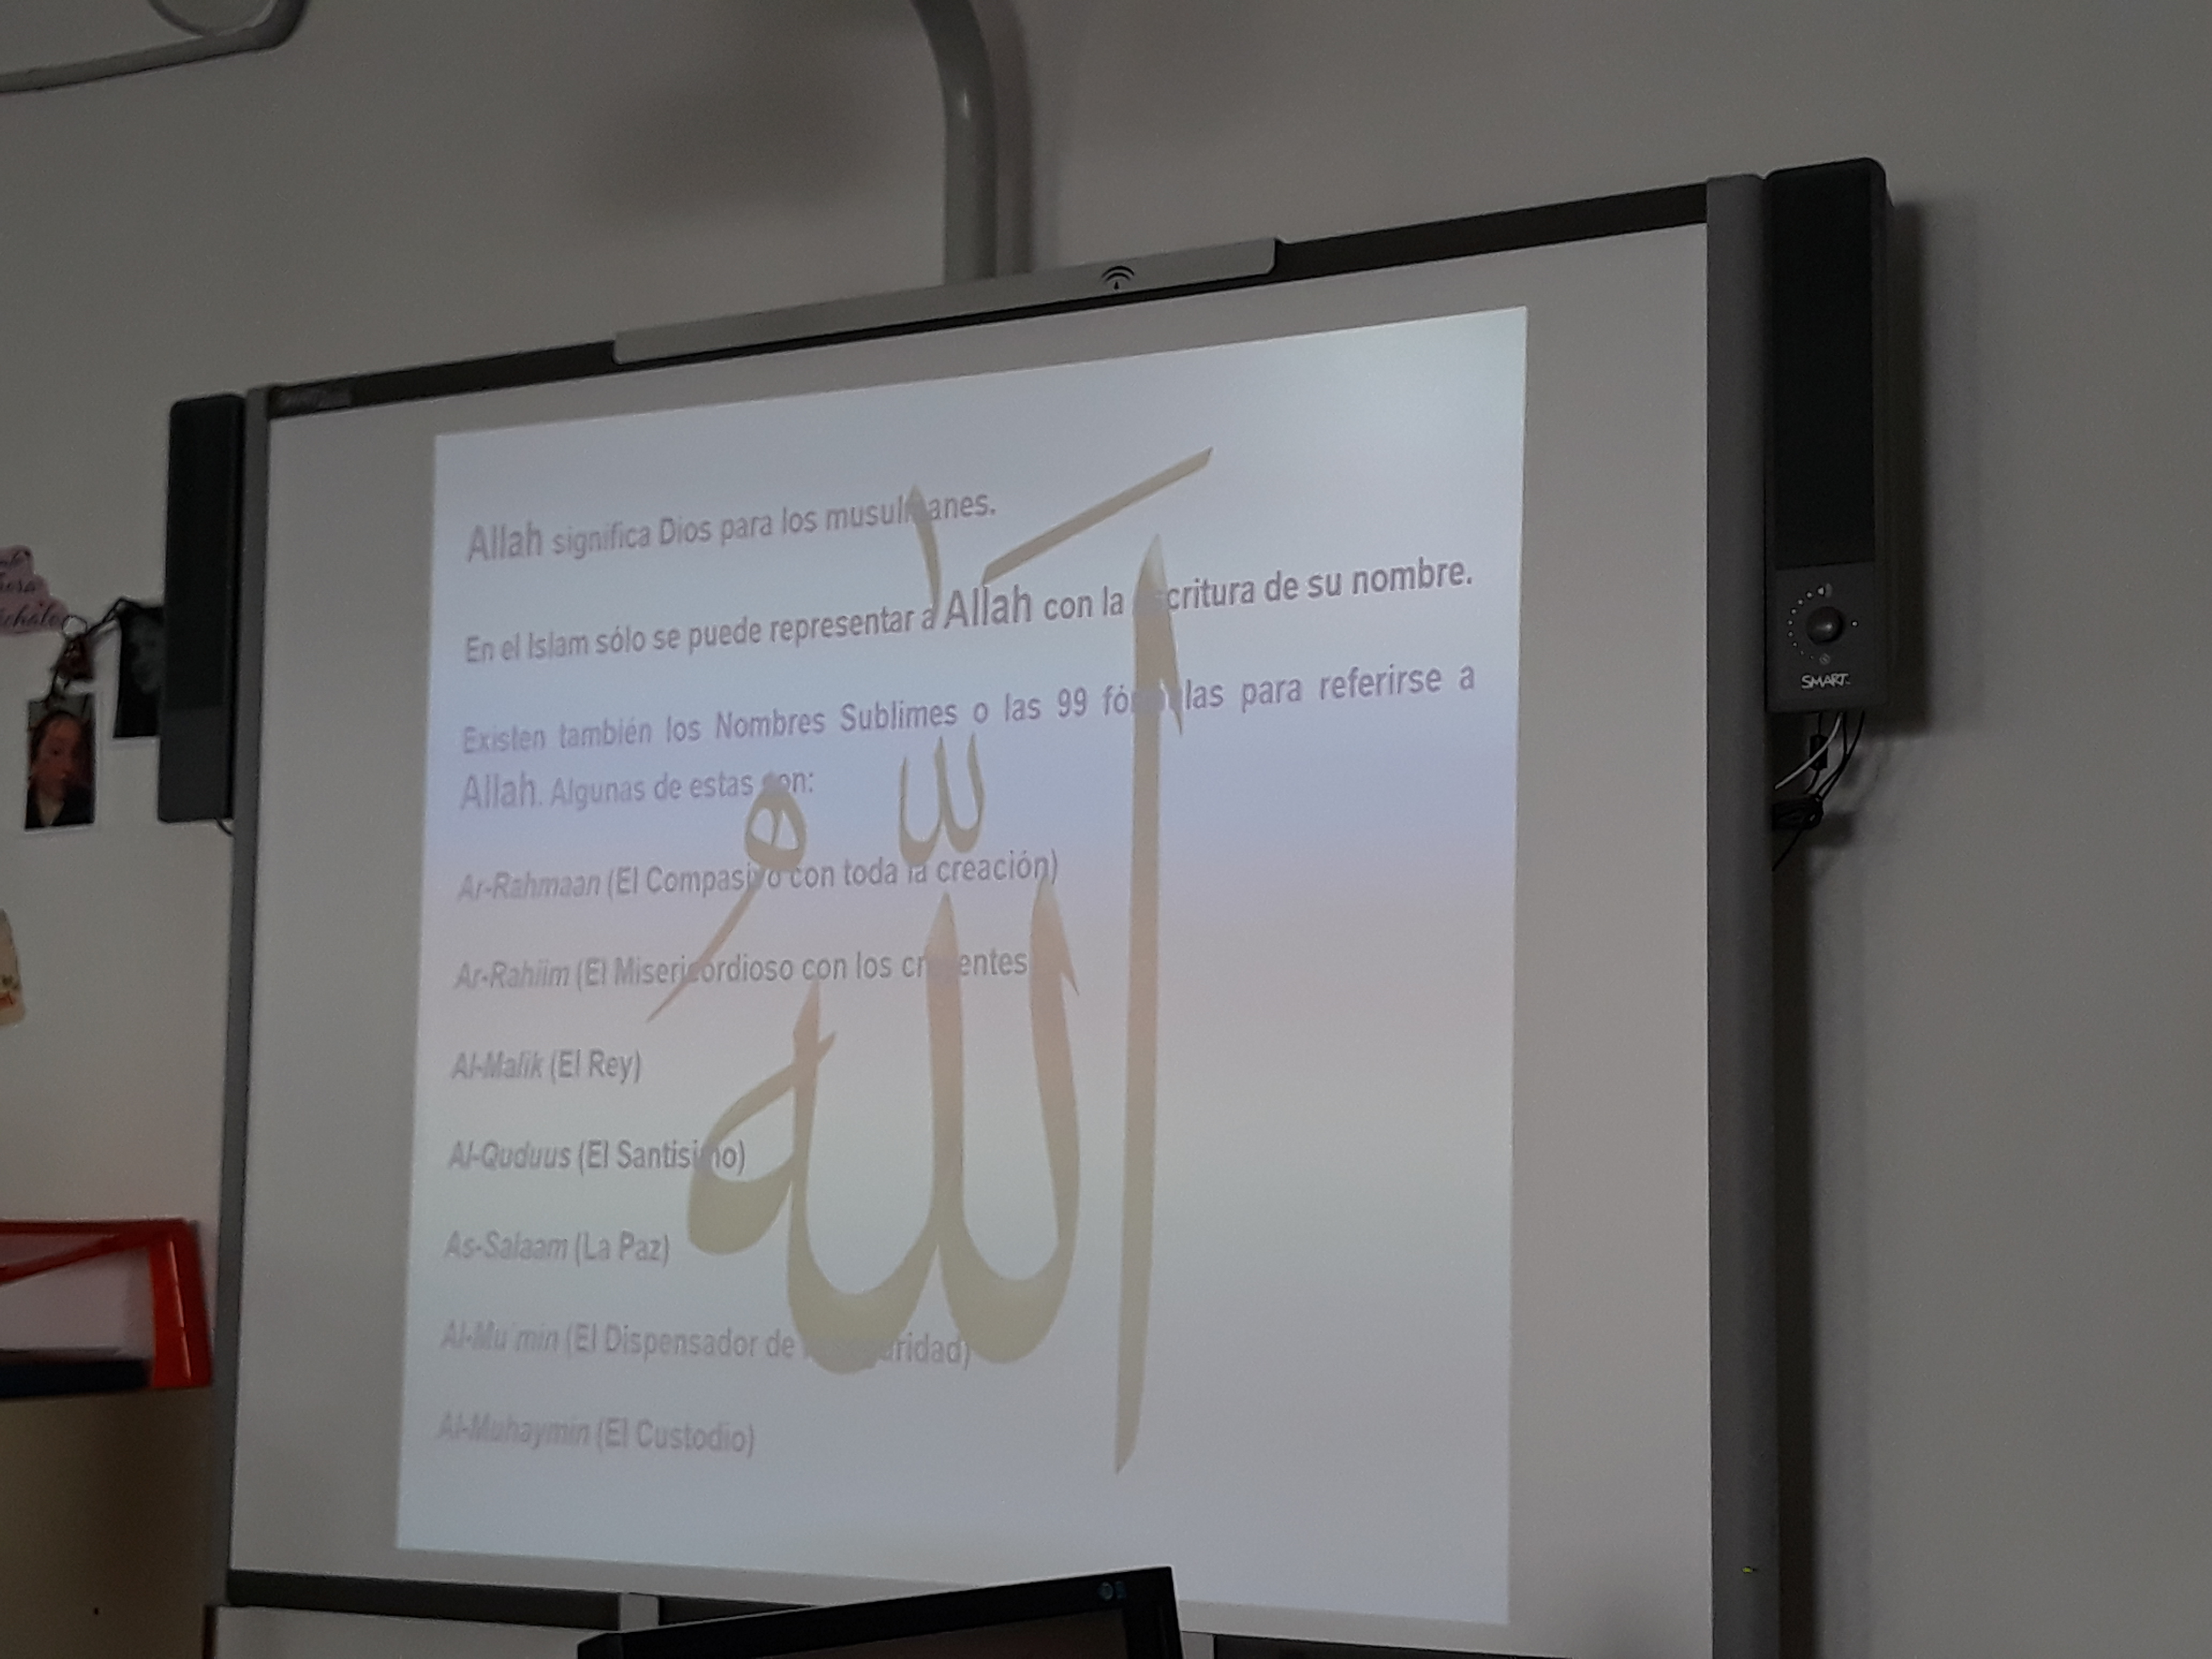 Allah significa Dios para los musulmanes.
En el Islam sólo se puede representar a Allah con la escritura de su nombre.
Existen también los Nombres Sublimes o las 99 fórmulas para referirse a
Allah. Algunas de estas son:
Ar-Rahmaan (El Compasivo con toda la creación)
Ar-Rahiim (El Misericordioso con los creyentes
Al-Malik (El Rey)
Al-Quduus (El Santisimo)
As-Salaam (La Paz)
Al-Mu´min (El Dispensador de seguridad)
Al-Muhaymin (El Custodio)
الله
SMART